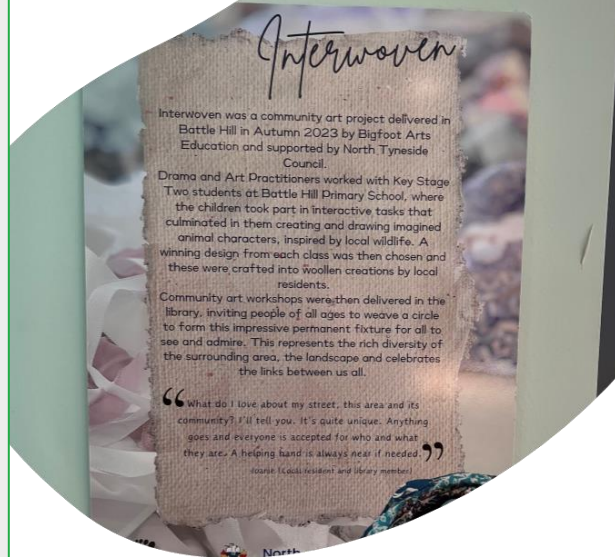 Interwoven
Interwoven was a community art project delivered in
Battle Hill in Autumn 2023 by Bigfoot Arts
Education and supported by North Tyneside
Council.
Drama and Art Practitioners worked with Key Stage
Two students at Battle Hill Primary School, where
the children took part in interactive tasks that
culminated in them creating and drawing imagined
animal characters, inspired by local wildlife. A
winning design from each class was then chosen and
these were crafted into woollen creations by local
residents.
Community art workshops were then delivered in the
library, inviting people of all ages to weave a circle
to form this impressive permanent fixture for all to
see and admire. This represents the rich diversity of
the surrounding area, the landscape and celebrates
the links between us all.
“What do I love about my street, this area and its
community? I'll tell you. It's quite unique. Anything
goes and everyone is accepted for who and what
they are. A helping hand is always near if needed.”
(Local resident and library member)
North